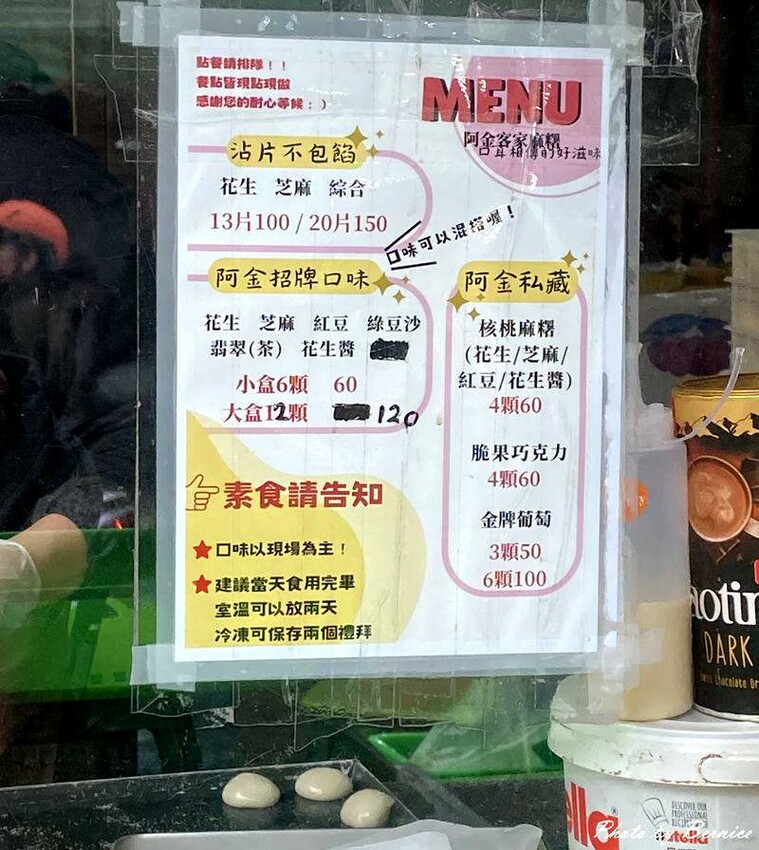 點餐請排隊！！
餐點皆現點現做
感謝您的耐心等候：）
MENU
阿金客家麻糬
口耳相傳的好滋味
沾片不包餡
花生 芝麻 綜合
13片100 / 20片150
口味可以混搭喔！
阿金招牌口味
花生 芝麻 紅豆 綠豆沙
翡翠(茶) 花生醬
小盒6顆 60
大盒12顆 120
阿金私藏
核桃麻糬
(花生/芝麻/
紅豆/花生醬)
4顆60
脆果巧克力
4顆60
金牌葡萄
3顆50
6顆100
素食請告知
★口味以現場為主！
★建議當天食用完畢
室溫可以放兩天
冷凍可保存兩個禮拜
aotin
DARK
lla
DISCOVER OUR
PROFESSIONAL
nutella
Photo by Bernice